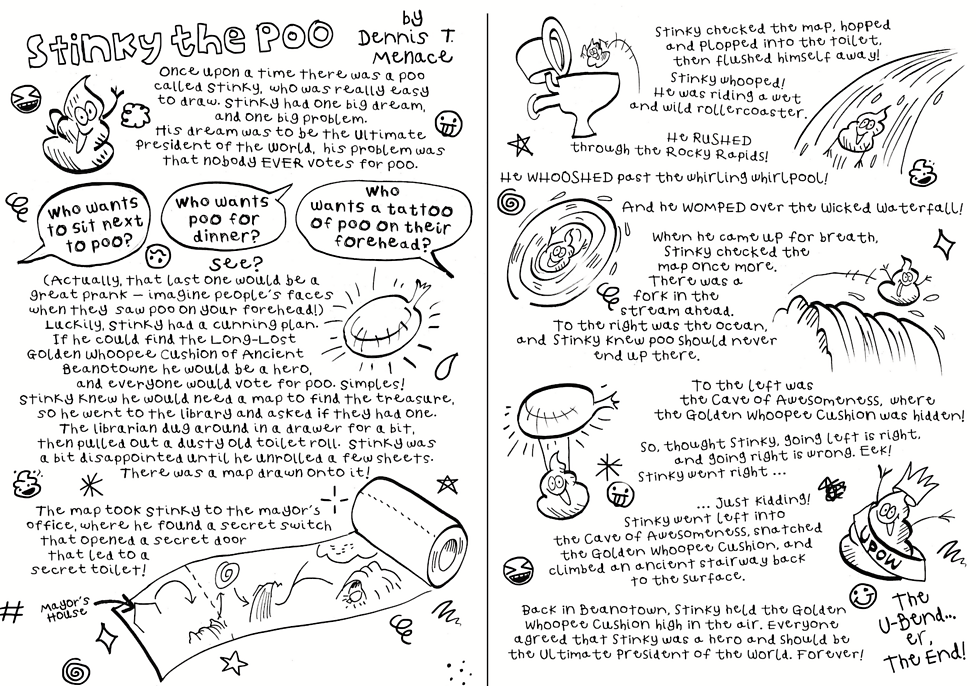 Stinky the Poo
by
Dennis T.
Menace
Once upon a time there was a poo
called Stinky, who was really easy
to draw. Stinky had one big dream,
and one big problem.
His dream was to be the Ultimate
President of the World, his problem was
that nobody EVER votes for poo.
Who wants
to sit next
to poo?
Who wants
poo for
dinner?
Who
wants a tattoo
of poo on their
forehead?
See?
(Actually, that last one would be a
great prank – imagine people's faces
when they saw poo on your forehead!)
Luckily, Stinky had a cunning plan.
If he could find the Long-Lost
Golden Whoopee Cushion of Ancient
Beanotowne he would be a hero,
and everyone would vote for poo. Simples!
Stinky knew he would need a map to find the treasure,
so he went to the library and asked if they had one.
The librarian dug around in a drawer for a bit,
then pulled out a dusty old toilet roll. Stinky was
a bit disappointed until he unrolled a few sheets.
There was a map drawn onto it!
The map took Stinky to the mayor's
office, where he found a secret switch
that opened a secret door
that led to a
secret toilet!
Mayor's
House
Stinky checked the map, hopped
and plopped into the toilet,
then flushed himself away!
Stinky whooped!
He was riding a wet
and wild rollercoaster.
He RUSHED
through the Rocky Rapids!
He WHOOSHED past the whirling whirlpool!
And he WOMPED over the Wicked Waterfall!
When he came up for breath,
Stinky checked the
map once more.
There was a
fork in the
stream ahead.
To the right was the ocean,
and Stinky knew poo should never
end up there.
To the left was
the Cave of Awesomeness, where
the Golden Whoopee Cushion was hidden!
So, thought Stinky, going left is right,
and going right is wrong. Eek!
Stinky went right ...
... Just kidding!
Stinky went left into
the Cave of Awesomeness, snatched
the Golden Whoopee Cushion, and
climbed an ancient stairway back
to the surface.
UPOW
Back in Beanotown, Stinky held the Golden
Whoopee Cushion high in the air. Everyone
agreed that Stinky was a hero and should be
the Ultimate President of the World. Forever!
The
U-Bend...
er,
The End!